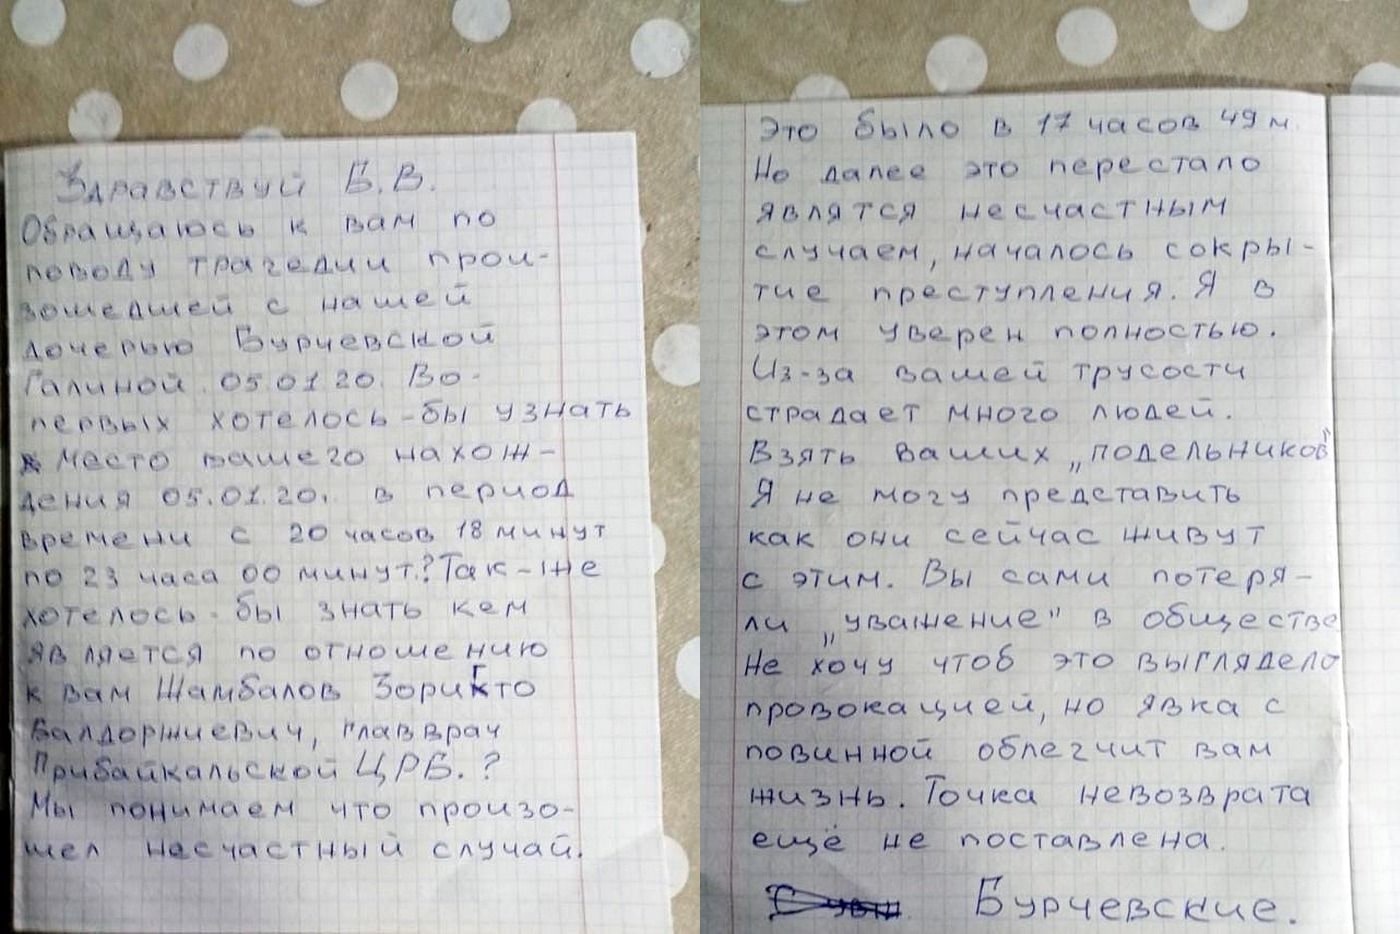 Здравствуй Б.В.
Обращаюсь к вам по
поводу трагедии прои-
зошедшей с нашей
дочерью Бурчевской
Галиной 05.01.20. Во-
первых хотелось-бы узнать
место вашего нахож-
дения 05.01.20. в период
времени с 20 часов 18 минут
по 23 часа 00 минут.? Так-же
хотелось-бы знать кем
является по отношению
к вам Жамбалов Зорикто
Балдоржиевич, главврач
Прибайкальской ЦРБ.?
Мы понимаем что произо-
шел несчастный случай.
Это было в 17 часов 49 м.
Но далее это перестало
являтся несчастным
случаем, началось сокры-
тие преступления. Я в
этом уверен полностью.
Из-за вашей трусости
страдает много людей.
Взять ваших „подельников"
Я не могу представить
как они сейчас живут
с этим. Вы сами потеря-
ли „уважение" в обществе
Не хочу чтоб это выглядело
провокацией, но явка с
повинной облегчит вам
жизнь. Точка невозврата
ещё не поставлена.
Бурчевские.